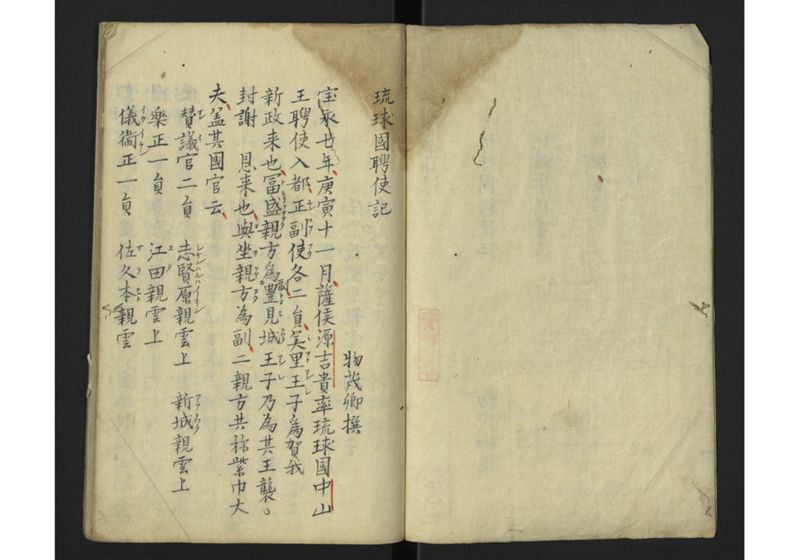 琉球國聘使記
物茂卿撰
宝永廿年庚寅十一月薩侯源吉貴率琉球國中山
王聘使入都正副使各二員美里王子為賀我
新政来也冨盛親方為豊見城王子乃為其王襲
封謝 恩来也與坐親方為副二親方共称紫巾大
夫盖其國官云
賛議官二員 志賢原親雲上 新城親雲上
樂正一員 江田親雲上
儀衛正一員 佐久本親雲